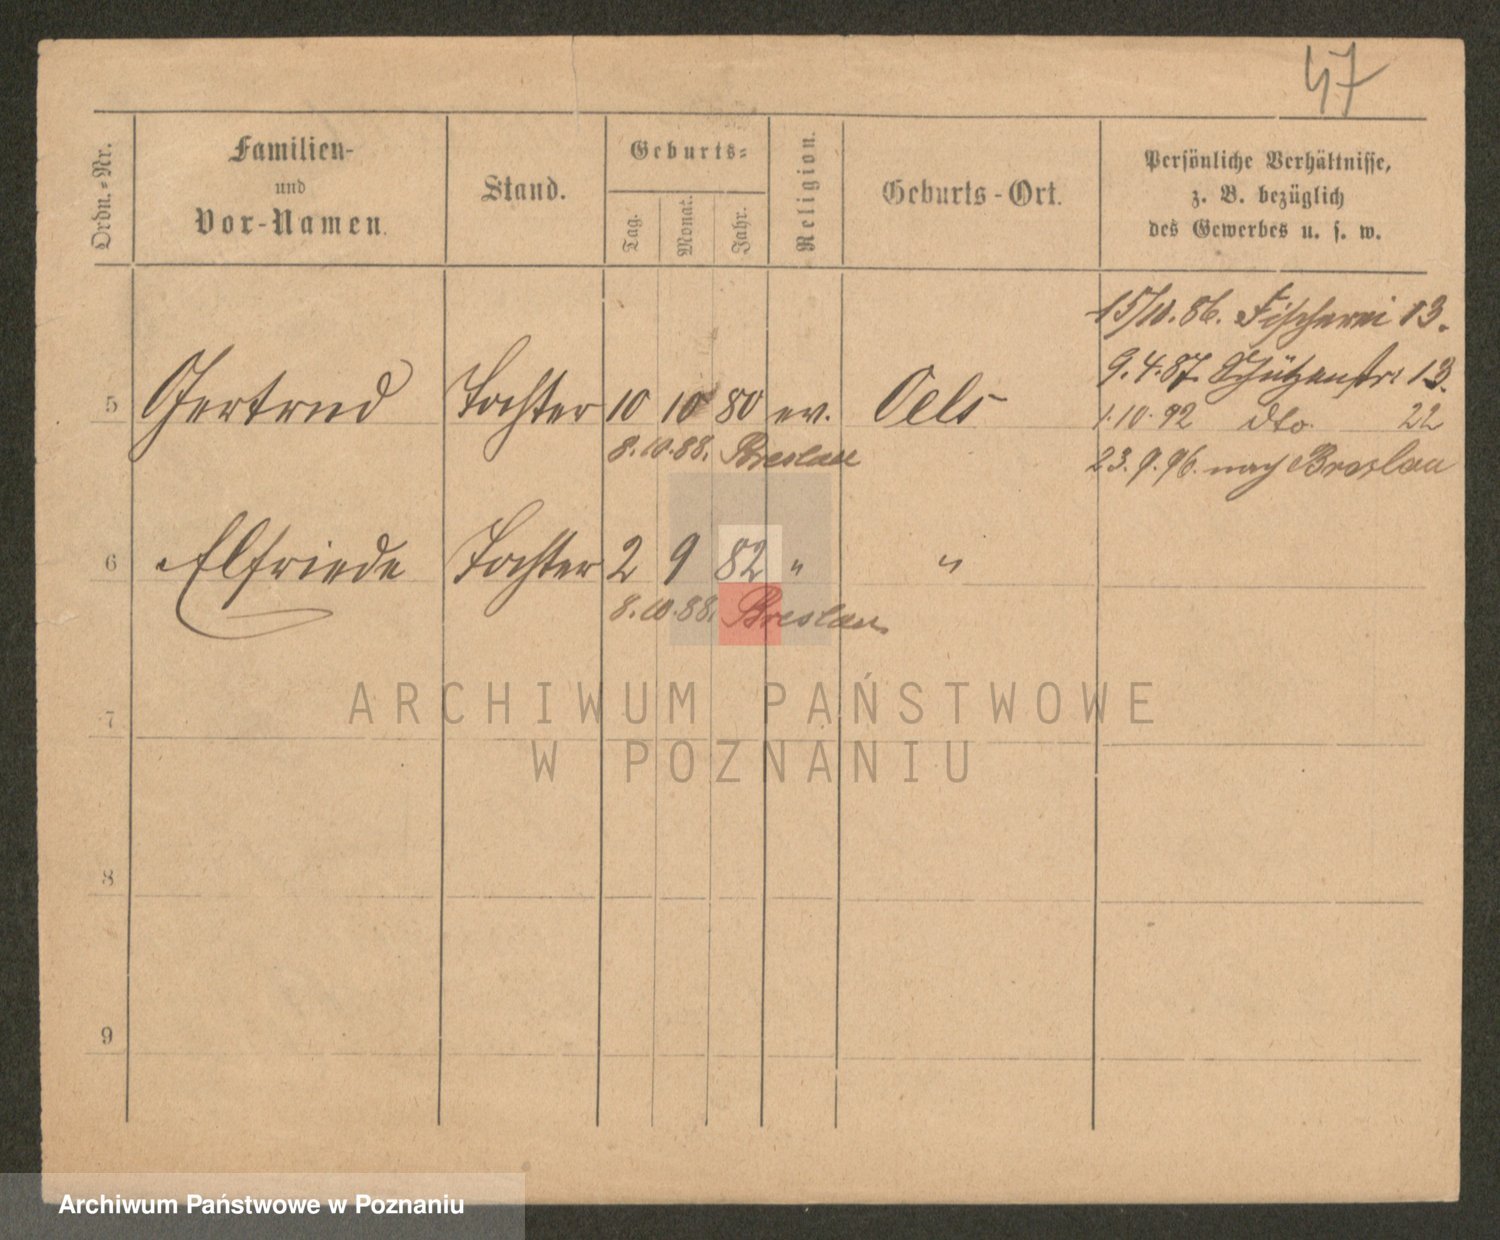 47
Ordn.-Nr.
Familien-
und
Vor-Namen.
Stand.
Geburts-
Tag.
Monat.
Jahr.
Religion.
Geburts-Ort.
Persönliche Verhältnisse,
z. B. bezüglich
des Gewerbes u. s. w.
15/10.86. Fischerei 13.
9.4.87. Schützenstr. 13.
5 Gertrud Tochter 10 10 80 ev. Oels
1.10.92 dto. 22
8.10.88. Breslau
23.9.96. nach Breslau
6 Elfriede Tochter 2 9 82 " "
8.10.88. Breslau
ARCHIWUM PAŃSTWOWE
7
W POZNANIU
8
9
Archiwum Państwowe w Poznaniu